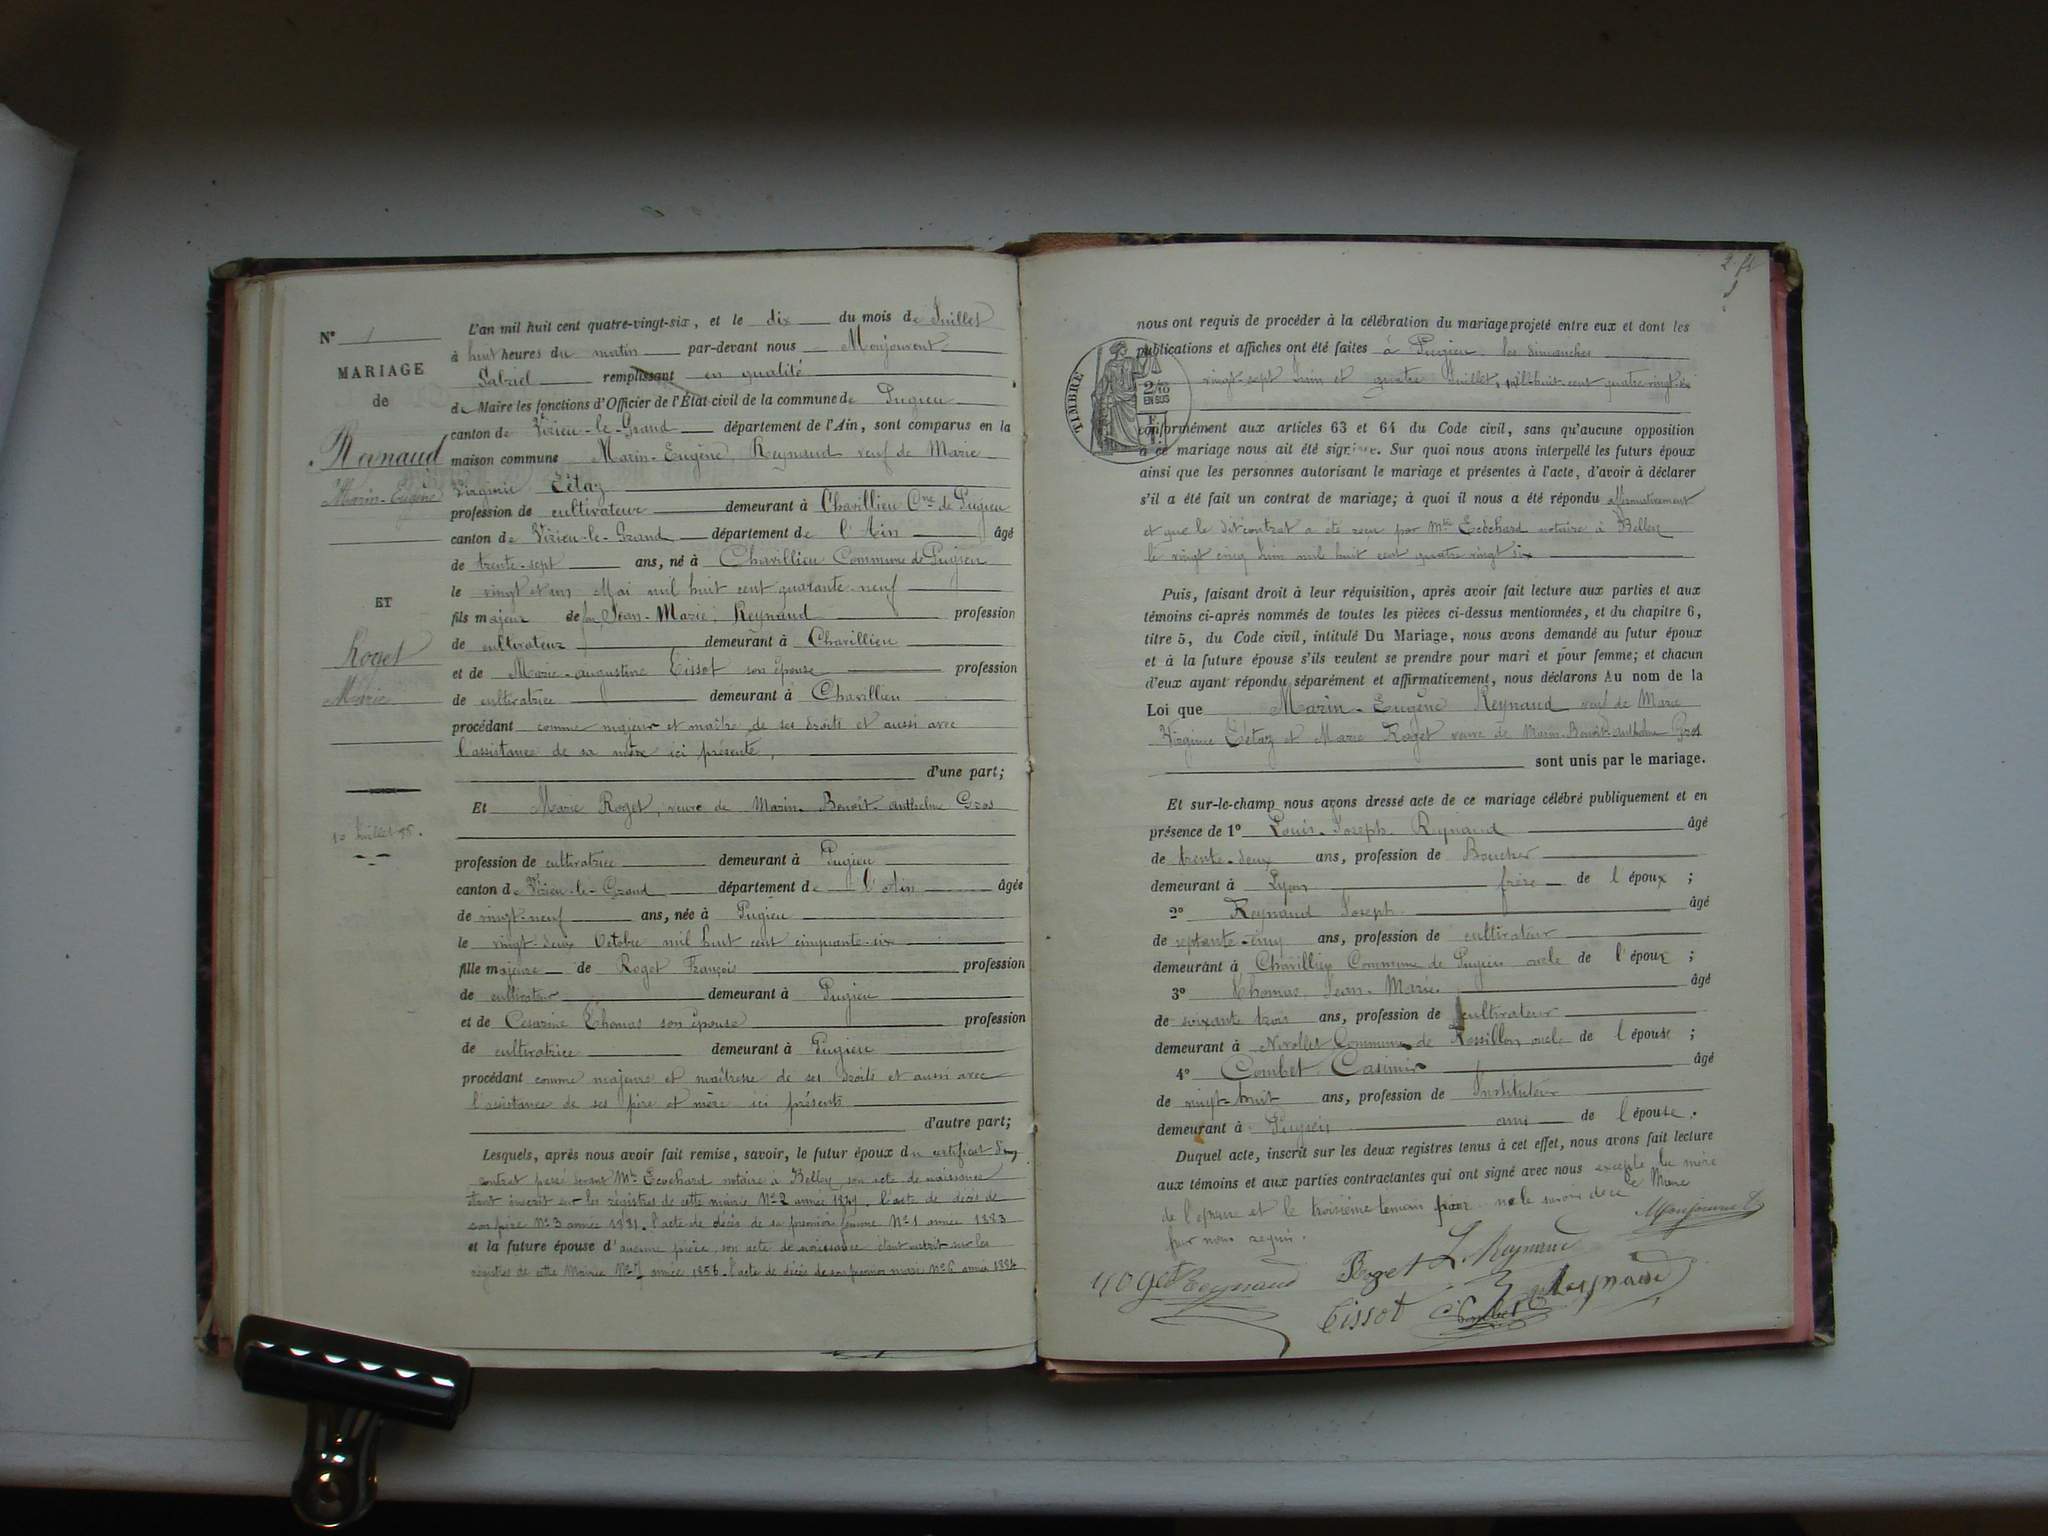 N° 1
MARIAGE
de
Renaud
Marin-Eugène
ET
Roget
Marie
10 Juillet
L'an mil huit cent quatre-vingt-six, et le dix du mois de Juillet
à huit heures du matin par-devant nous Monjournet
Gabriel remplissant en qualité
de Maire les fonctions d'Officier de l'État civil de la commune de Pugieu
canton de Virieu-le-Grand département de l'Ain, sont comparus en la
maison commune Marin-Eugène, Reynaud veuf de Marie
Virginie Tétaz
profession de cultivateur demeurant à Chavillieu Cne de Pugieu
canton de Virieu-le-Grand département de l'Ain âgé
de trente-sept ans, né à Chavillieu Commune de Pugieu
le vingt et un Mai mil huit cent quarante-neuf
fils majeur de feu Jean-Marie, Reynaud profession
de cultivateur demeurant à Chavillieu
et de Marie-augustine Tissot son épouse profession
de cultivatrice demeurant à Chavillieu
procédant comme majeur et maître de ses droits et aussi avec
l'assistance de sa mère ici présente,
d'une part;
Et Marie Roget, veuve de Marin-Benoît-anthelme Gros
profession de cultivatrice demeurant à Pugieu
canton de Virieu-le-Grand département de l'Ain âgée
de vingt-neuf ans, née à Pugieu
le vingt-deux Octobre mil huit cent cinquante-six
fille majeure de Roget François profession
de cultivateur demeurant à Pugieu
et de Césarine Thomas son épouse profession
de cultivatrice demeurant à Pugieu
procédant comme majeure et maîtresse de ses droits et aussi avec
l'assistance de ses père et mère ici présents
d'autre part;
Lesquels, après nous avoir fait remise, savoir, le futur époux du certificat d'un
contrat passé devant Me Ecochard notaire à Belley, son acte de naissance
étant inscrit sur les registres de cette mairie No 2 année 1849. l'acte de décès de
son père No 3 année 1881. l'acte de décès de sa première femme No 1 année 1883
et la future épouse d'aucune pièce, son acte de naissance étant inscrit sur les
registres de cette Mairie No 7 année 1856. l'acte de décès de son premier mari No 6 année 1884
2
TIMBRE
2/10
EN SUS
nous ont requis de procéder à la célébration du mariage projeté entre eux et dont les
publications et affiches ont été faites à Pugieu les dimanches
vingt-sept Juin et quatre Juillet, mil-huit-cent quatre vingt-six
conformément aux articles 63 et 64 du Code civil, sans qu'aucune opposition
à ce mariage nous ait été signifiée. Sur quoi nous avons interpellé les futurs époux
ainsi que les personnes autorisant le mariage et présentes à l'acte, d'avoir à déclarer
s'il a été fait un contrat de mariage; à quoi il nous a été répondu affirmativement
et que le dit contrat a été reçu par Me Ecochard notaire à Belley
le vingt cinq Juin mil huit cent quatre vingt six
Puis, faisant droit à leur réquisition, après avoir fait lecture aux parties et aux
témoins ci-après nommés de toutes les pièces ci-dessus mentionnées, et du chapitre 6,
titre 5, du Code civil, intitulé Du Mariage, nous avons demandé au futur époux
et à la future épouse s'ils veulent se prendre pour mari et pour femme; et chacun
d'eux ayant répondu séparément et affirmativement, nous déclarons Au nom de la
Loi que Marin-Eugène Reynaud veuf de Marie
Virginie Tétaz et Marie Roget veuve de Marin-Benoît-anthelme Gros
sont unis par le mariage.
Et sur-le-champ nous avons dressé acte de ce mariage célébré publiquement et en
présence de 1° Louis-Joseph Reynaud âgé
de trente-deux ans, profession de Boucher
demeurant à Lyon frère de l'époux ;
2° Reynaud Joseph âgé
de septante-cinq ans, profession de cultivateur
demeurant à Chavillieu Commune de Pugieu oncle de l'époux ;
3° Thomas Jean-Marie âgé
de soixante trois ans, profession de cultivateur
demeurant à Nivollet Commune de Rossillon oncle de l'épouse ;
4° Combet Casimir âgé
de vingt-huit ans, profession de Instituteur
demeurant à Pugieu ami de l'épouse.
Duquel acte, inscrit sur les deux registres tenus à cet effet, nous avons fait lecture
aux témoins et aux parties contractantes qui ont signé avec nous excepté la mère
de l'épouse et le troisième témoin pour ne le savoir de ce
par nous requis.
Le Maire
Monjournet
roget Reynaud Roget L. Reynaud
Tissot C. Combet Reynaud